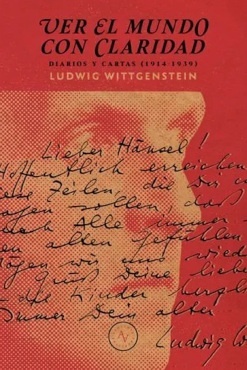 VER EL MUNDO
CON CLARIDAD
DIARIOS Y CARTAS (1914-1939)
LUDWIG WITTGENSTEIN
Lieber Hänsel!
Hoffentlich erreichen
diese Zeilen, die Dir
sagen sollen, daß
Alle immer
alten Gefühlen
Mögen wir uns
Deine liebe
Kinder
Immer Dein alter
Ludwig W